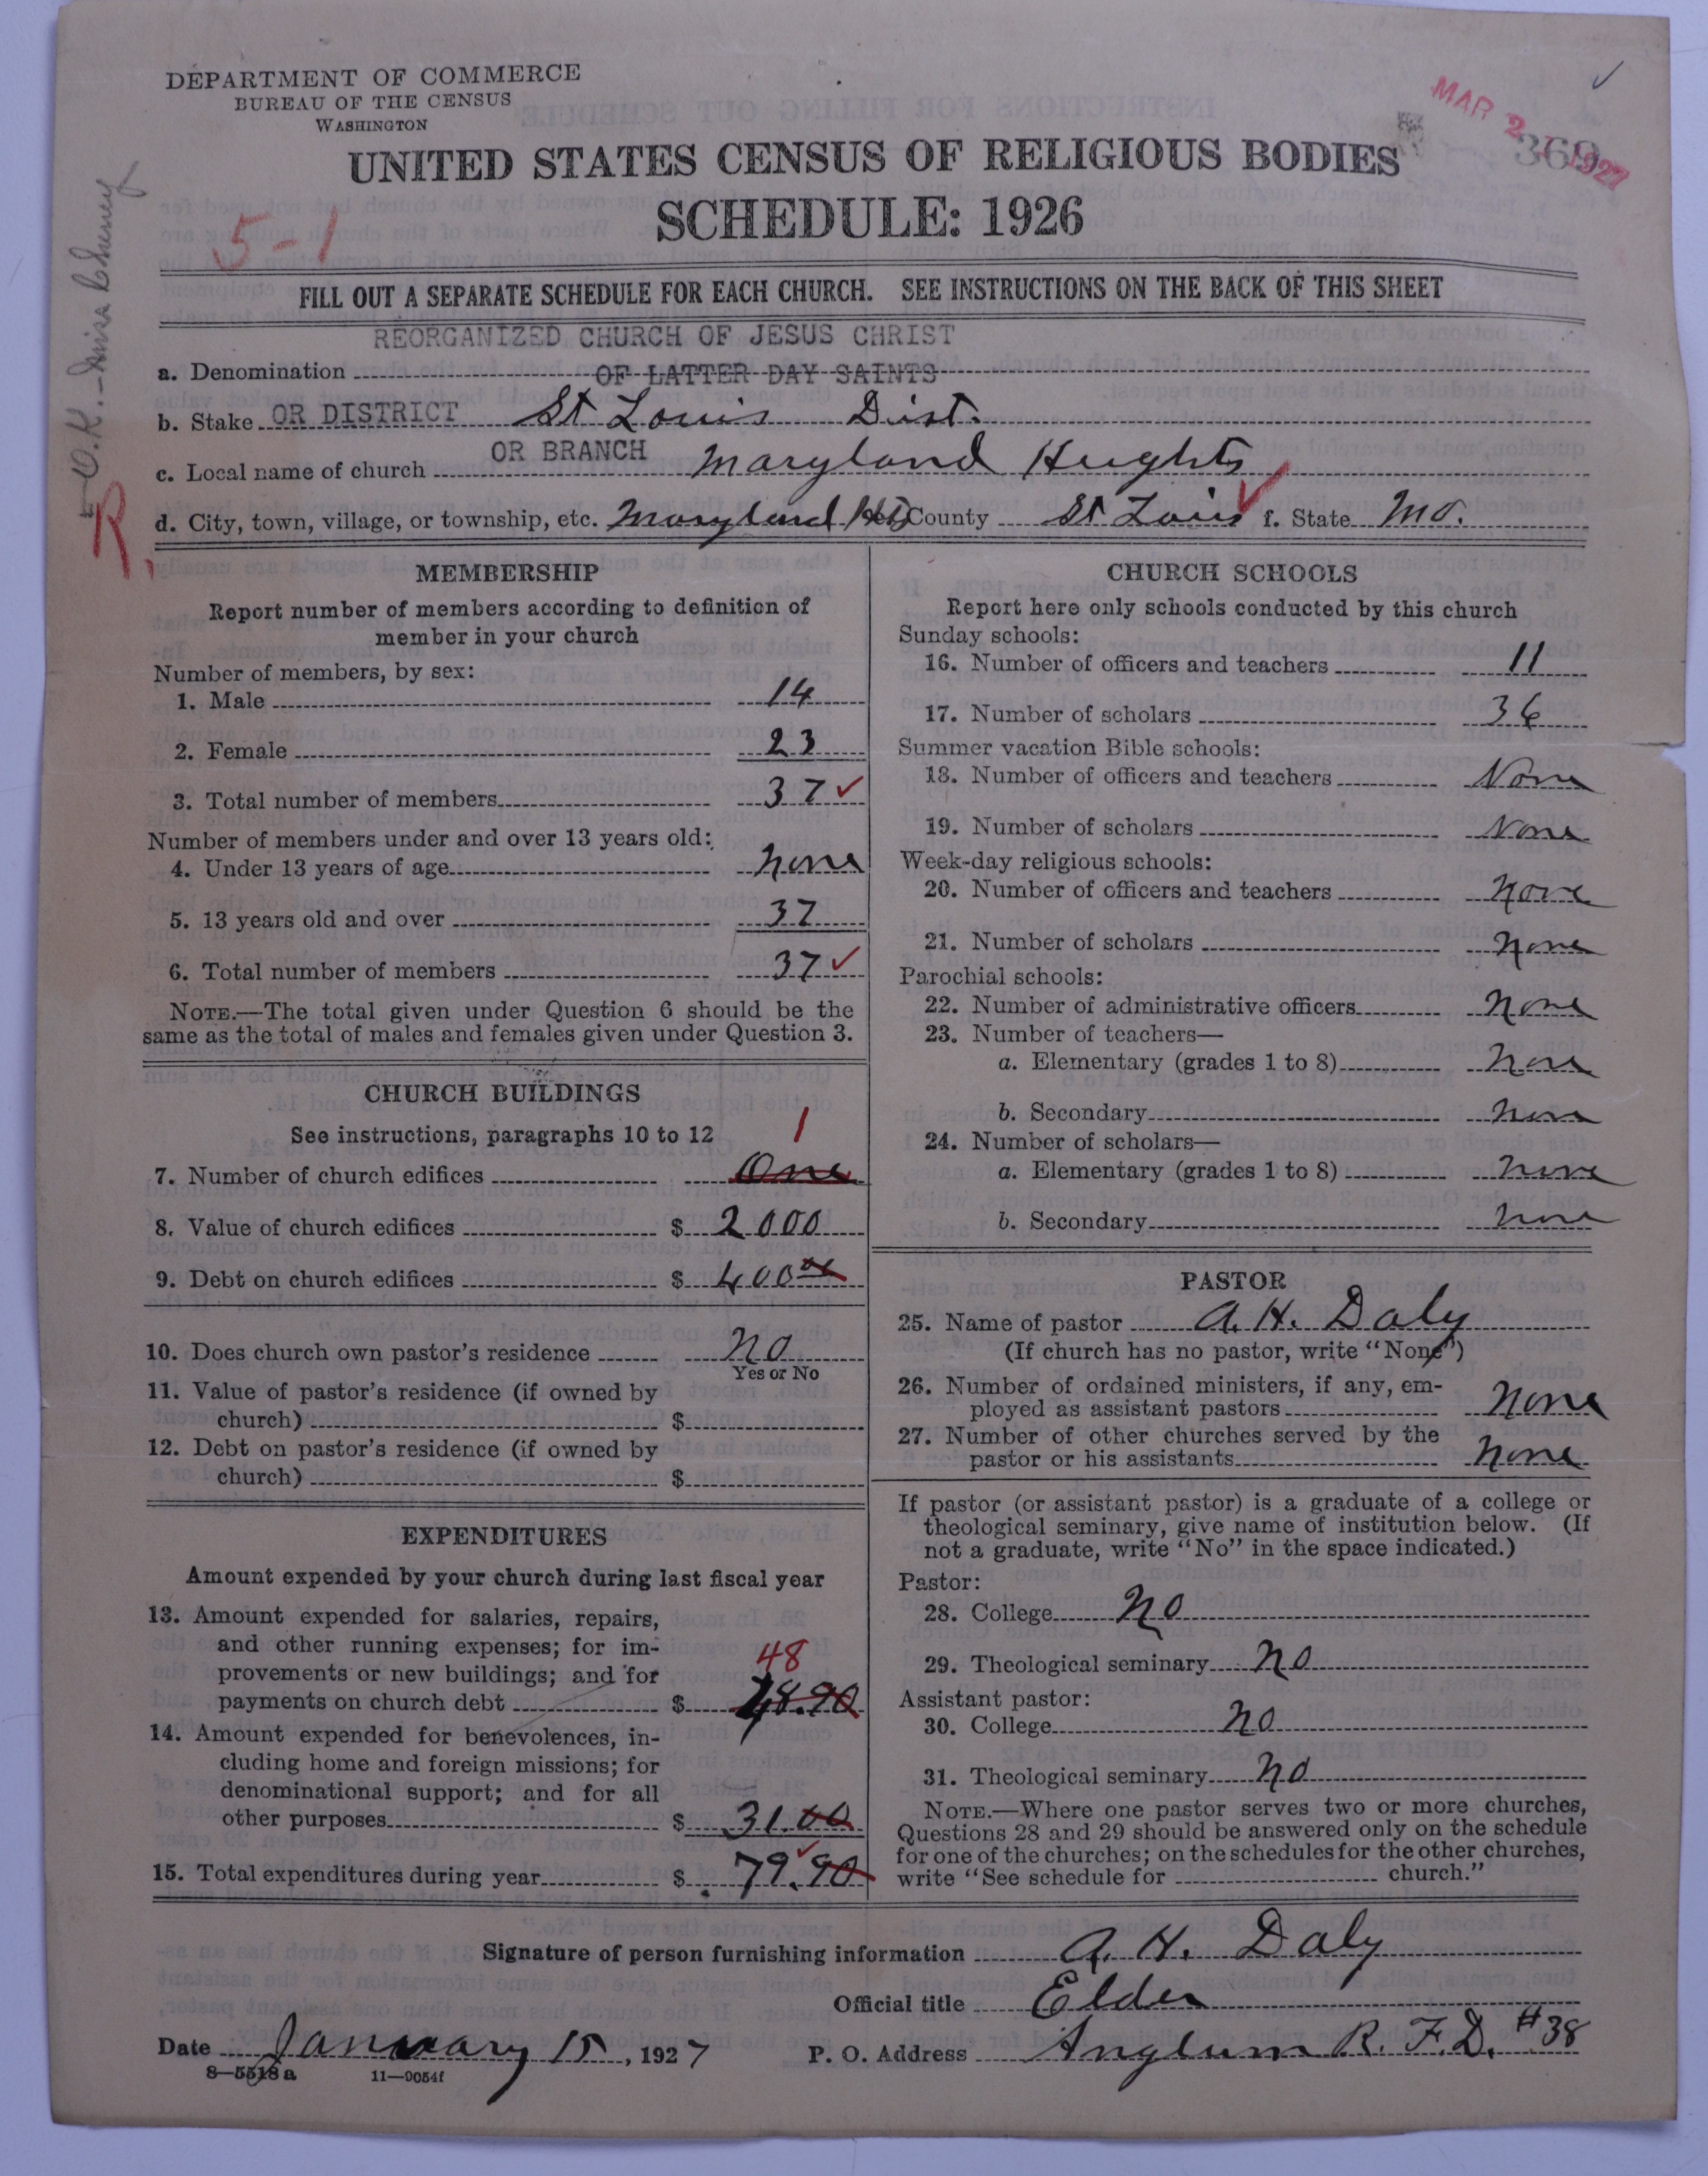 DEPARTMENT OF COMMERCE
BUREAU OF THE CENSUS
WASHINGTON
MAR 2 1927
369
UNITED STATES CENSUS OF RELIGIOUS BODIES
SCHEDULE: 1926
5-1
FILL OUT A SEPARATE SCHEDULE FOR EACH CHURCH. SEE INSTRUCTIONS ON THE BACK OF THIS SHEET
O.K.
R.
REORGANIZED CHURCH OF JESUS CHRIST
a. Denomination OF LATTER DAY SAINTS
b. Stake OR DISTRICT St Louis Dist.
c. Local name of church OR BRANCH Maryland Heights
d. City, town, village, or township, etc. Maryland Hts County St Louis f. State Mo.
MEMBERSHIP
Report number of members according to definition of
member in your church
Number of members, by sex:
1. Male 14
2. Female 23
3. Total number of members 37
Number of members under and over 13 years old:
4. Under 13 years of age none
5. 13 years old and over 37
6. Total number of members 37
NOTE.—The total given under Question 6 should be the
same as the total of males and females given under Question 3.
CHURCH BUILDINGS
See instructions, paragraphs 10 to 12
1
7. Number of church edifices One
8. Value of church edifices $ 2000
9. Debt on church edifices $ 400 00
10. Does church own pastor's residence No
Yes or No
11. Value of pastor's residence (if owned by
church) $
12. Debt on pastor's residence (if owned by
church) $
EXPENDITURES
Amount expended by your church during last fiscal year
13. Amount expended for salaries, repairs,
and other running expenses; for im-
provements or new buildings; and for
48
payments on church debt $ 48.90
14. Amount expended for benevolences, in-
cluding home and foreign missions; for
denominational support; and for all
other purposes $ 31.00
15. Total expenditures during year $ 79.90
CHURCH SCHOOLS
Report here only schools conducted by this church
Sunday schools:
16. Number of officers and teachers 11
17. Number of scholars 36
Summer vacation Bible schools:
18. Number of officers and teachers None
19. Number of scholars None
Week-day religious schools:
20. Number of officers and teachers none
21. Number of scholars none
Parochial schools:
22. Number of administrative officers none
23. Number of teachers—
a. Elementary (grades 1 to 8) none
b. Secondary none
24. Number of scholars—
a. Elementary (grades 1 to 8) none
b. Secondary none
PASTOR
25. Name of pastor A. H. Daly
(If church has no pastor, write "None")
26. Number of ordained ministers, if any, em-
ployed as assistant pastors none
27. Number of other churches served by the
pastor or his assistants none
If pastor (or assistant pastor) is a graduate of a college or
theological seminary, give name of institution below. (If
not a graduate, write "No" in the space indicated.)
Pastor:
28. College No
29. Theological seminary No
Assistant pastor:
30. College No
31. Theological seminary No
NOTE.—Where one pastor serves two or more churches,
Questions 28 and 29 should be answered only on the schedule
for one of the churches; on the schedules for the other churches,
write "See schedule for church."
Signature of person furnishing information A. H. Daly
Official title Elder
Date January 15, 1927 P. O. Address Anglum R. F. D. #38
8—5518a 11—9054f